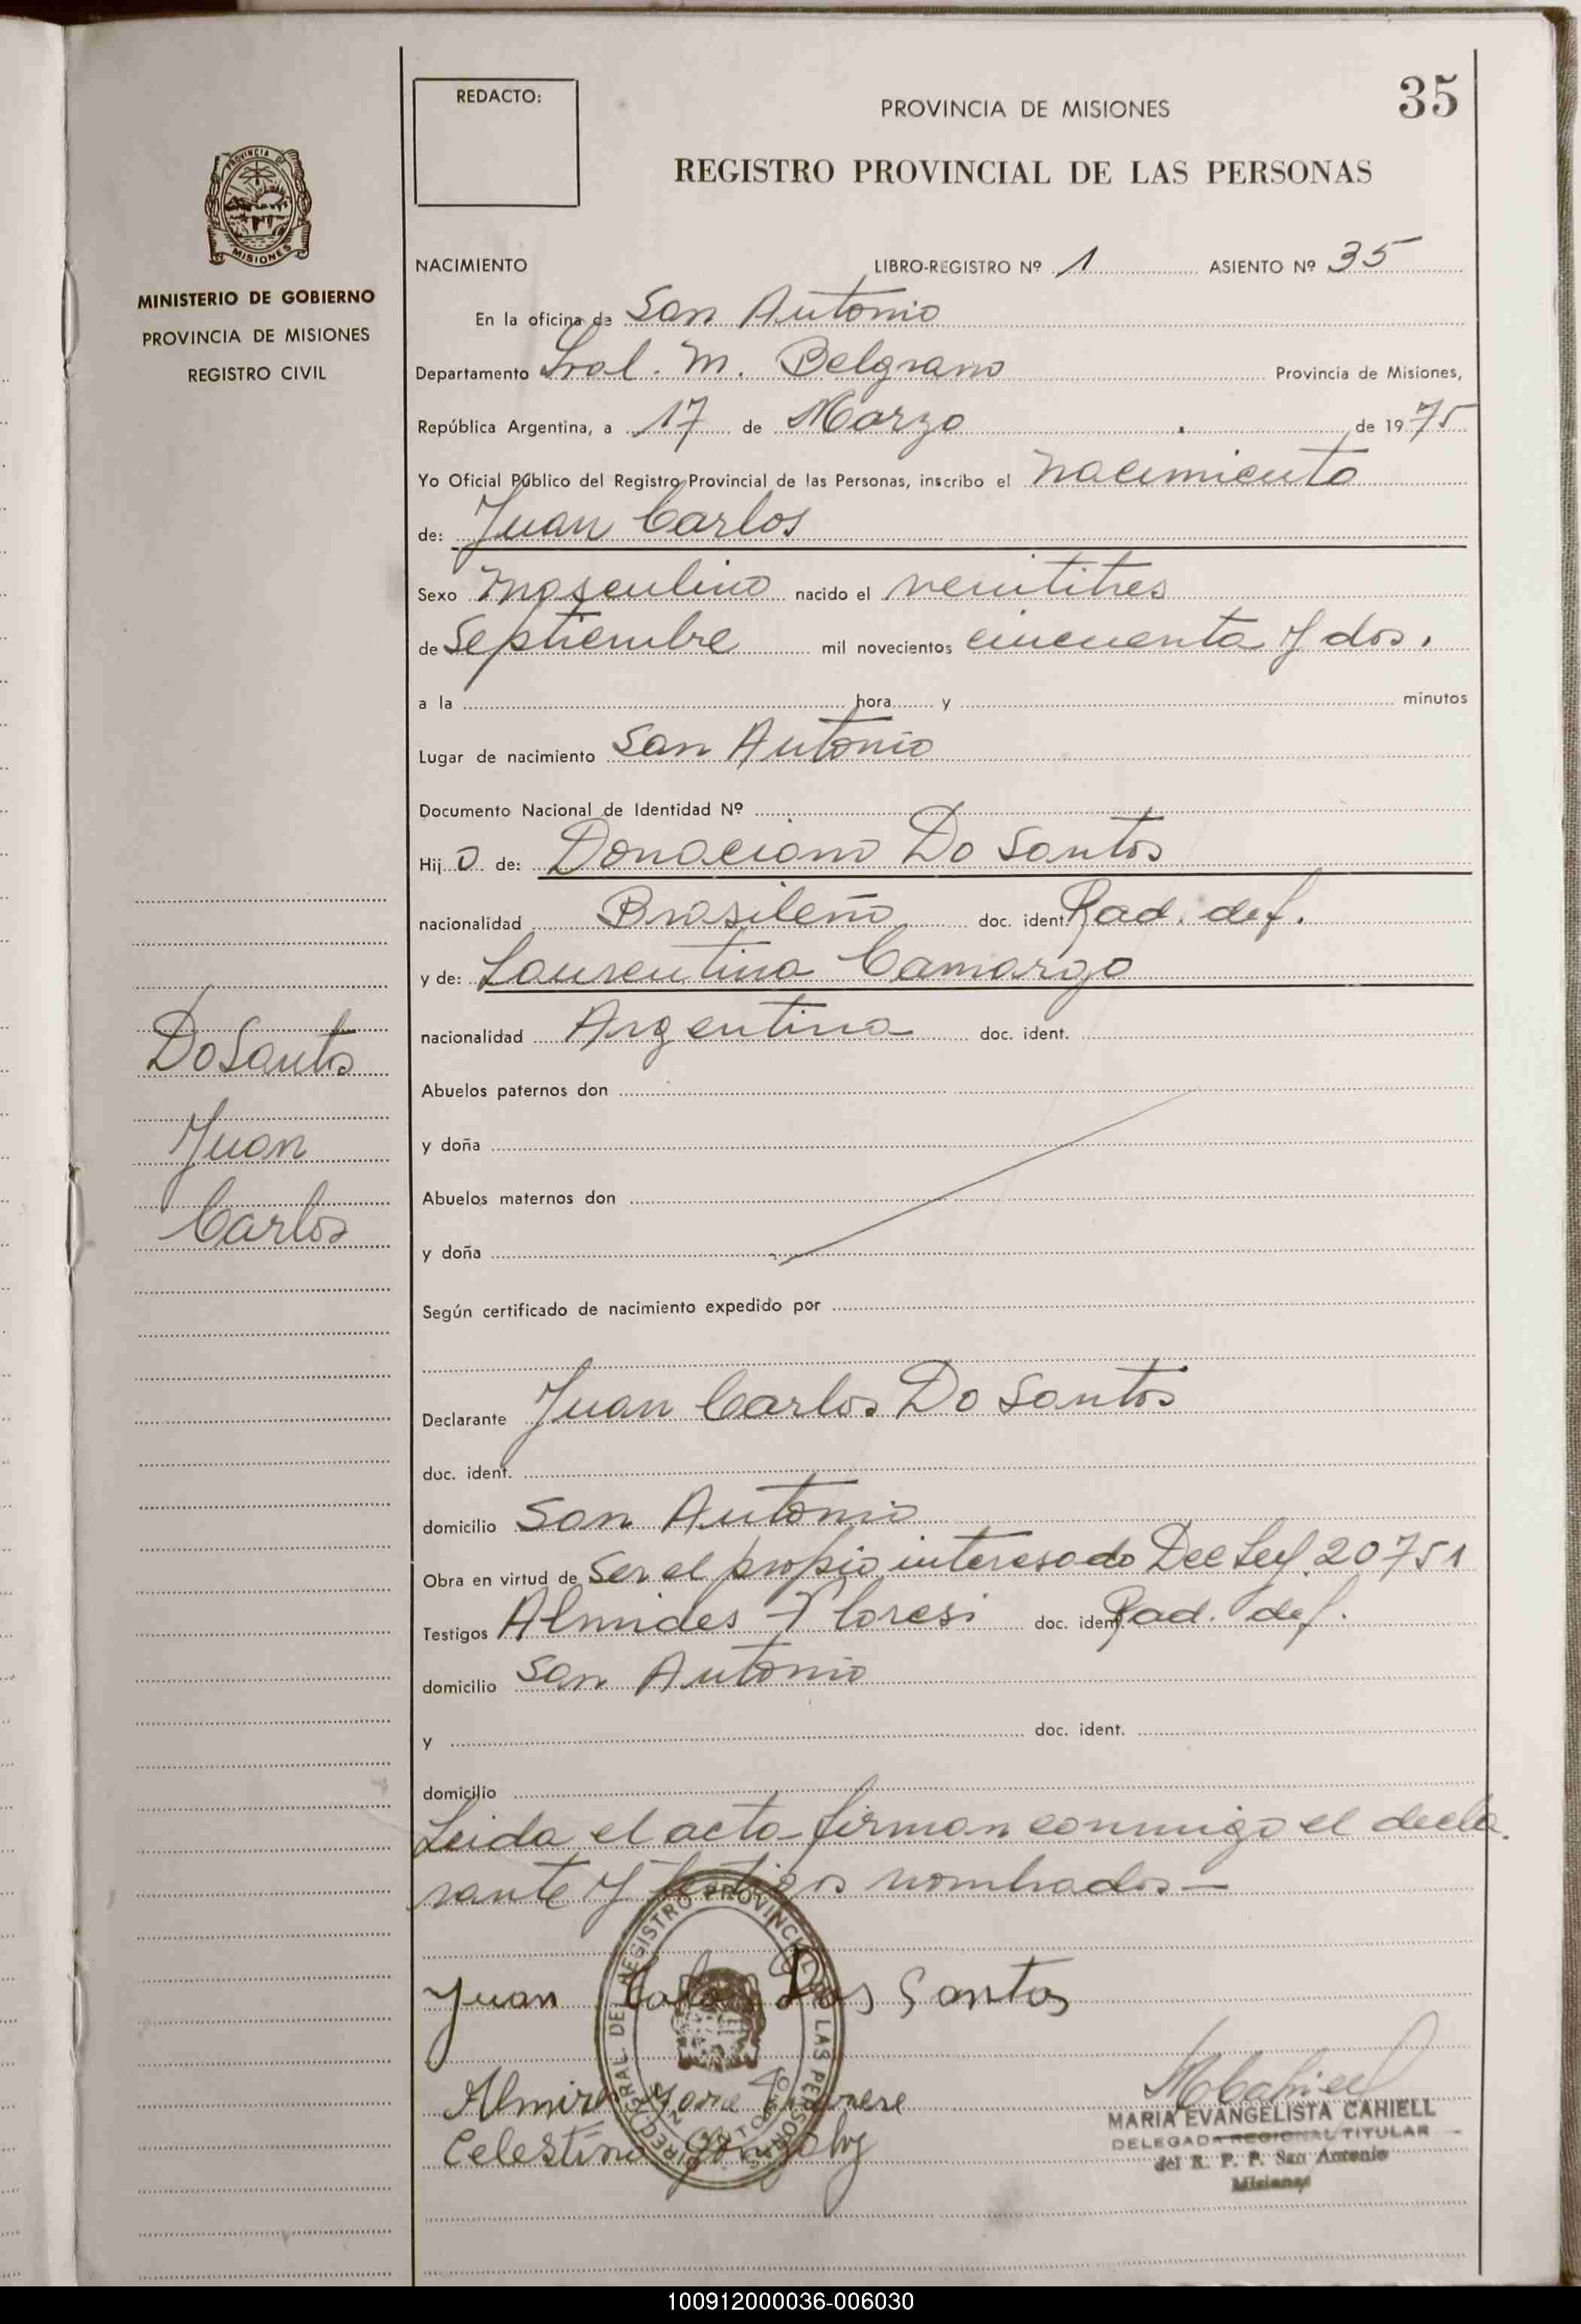 35
REDACTO:
PROVINCIA DE MISIONES
REGISTRO PROVINCIAL DE LAS PERSONAS
PROVINCIA DE
MISIONES
MINISTERIO DE GOBIERNO
PROVINCIA DE MISIONES
REGISTRO CIVIL
NACIMIENTO LIBRO-REGISTRO Nº 1 ASIENTO Nº 35
En la oficina de San Antonio
Departamento Gral. M. Belgrano Provincia de Misiones,
República Argentina, a 17 de Marzo de 1975
Yo Oficial Público del Registro Provincial de las Personas, inscribo el nacimiento
de: Juan Carlos
Sexo masculino nacido el veintitres
de Septiembre mil novecientos cincuenta y dos.
a la hora y minutos
Lugar de nacimiento San Antonio
Documento Nacional de Identidad Nº
Hij o de: Donaciano Do Santos
nacionalidad Brasileño doc. ident. Rad. def.
y de: Laurentina Camargo
nacionalidad Argentina doc. ident.
Abuelos paternos don
y doña
Abuelos maternos don
y doña
Según certificado de nacimiento expedido por
Declarante Juan Carlos Do Santos
doc. ident.
domicilio San Antonio
Obra en virtud de Ser el propio interesado Dec Ley 20751
Testigos doc. ident. Rad. def.
domicilio San Antonio
y doc. ident.
domicilio
Leida el acta firman conmigo el decla
rante y testigos nombrados —
Do Santos
Juan
Carlos
Juan Carlos Dos Santos
Celestino
MARIA EVANGELISTA CAHIELL
DELEGADA REGIONAL TITULAR
del R. P. P. San Antonio
Misiones
100912000036-006030